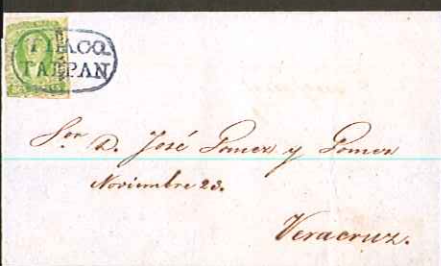 TLACO
TALPAN
Sor D. José Gomez y Gomez
Noviembre 23.
Veracruz.